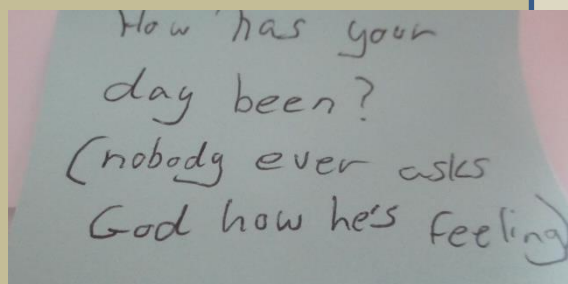 How has your
day been?
(nobody ever asks
God how he's feeling)